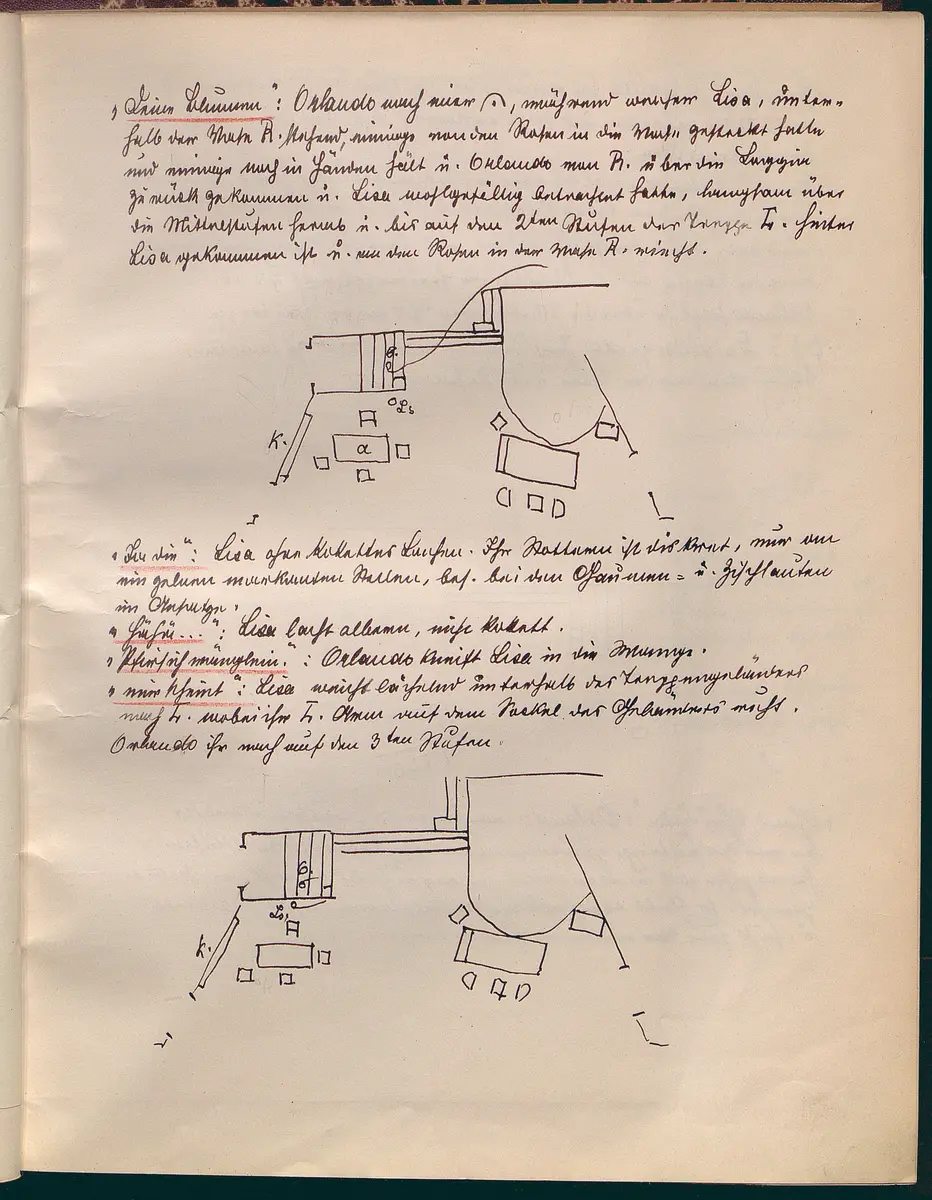 „Deine Blumen“: Orlando nach einer 𝄐, während welcher Lisa, unter-
halb der Vase R. stehend, einige von den Rosen in die Vase gesteckt hatte
und einige noch in Händen hält u. Orlando von R. über die Loggia
zurück gekommen u. Lisa wohlgefällig betrachtet hatte, langsam über
die Mittelstufen herab u. bis auf den 2ten Stufen der Treppe L. hinter
Lisa gekommen ist u. an den Rosen in der Vase R. riecht.
O.
Ls
K.
a
„Für die“: Lisa ohne kokettes Lachen. Ihr Stottern ist diskret, nur an
einzelnen markanten Stellen, bes. bei den Gaumen= u. Zischlauten
im Ansatze.
„Hähä...“: Lisa lacht albern, nicht kokett.
„Pfirsichwänglein.“: Orlando kneift Lisa in die Wange.
„mir scheint“: Lisa weicht lächelnd unterhalb des Treppengeländers
nach L. wobei ihr L. Arm auf dem Sockel des Geländers ruht.
Orlando ihr nach auf den 3ten Stufen.
O.
Ls.
K.